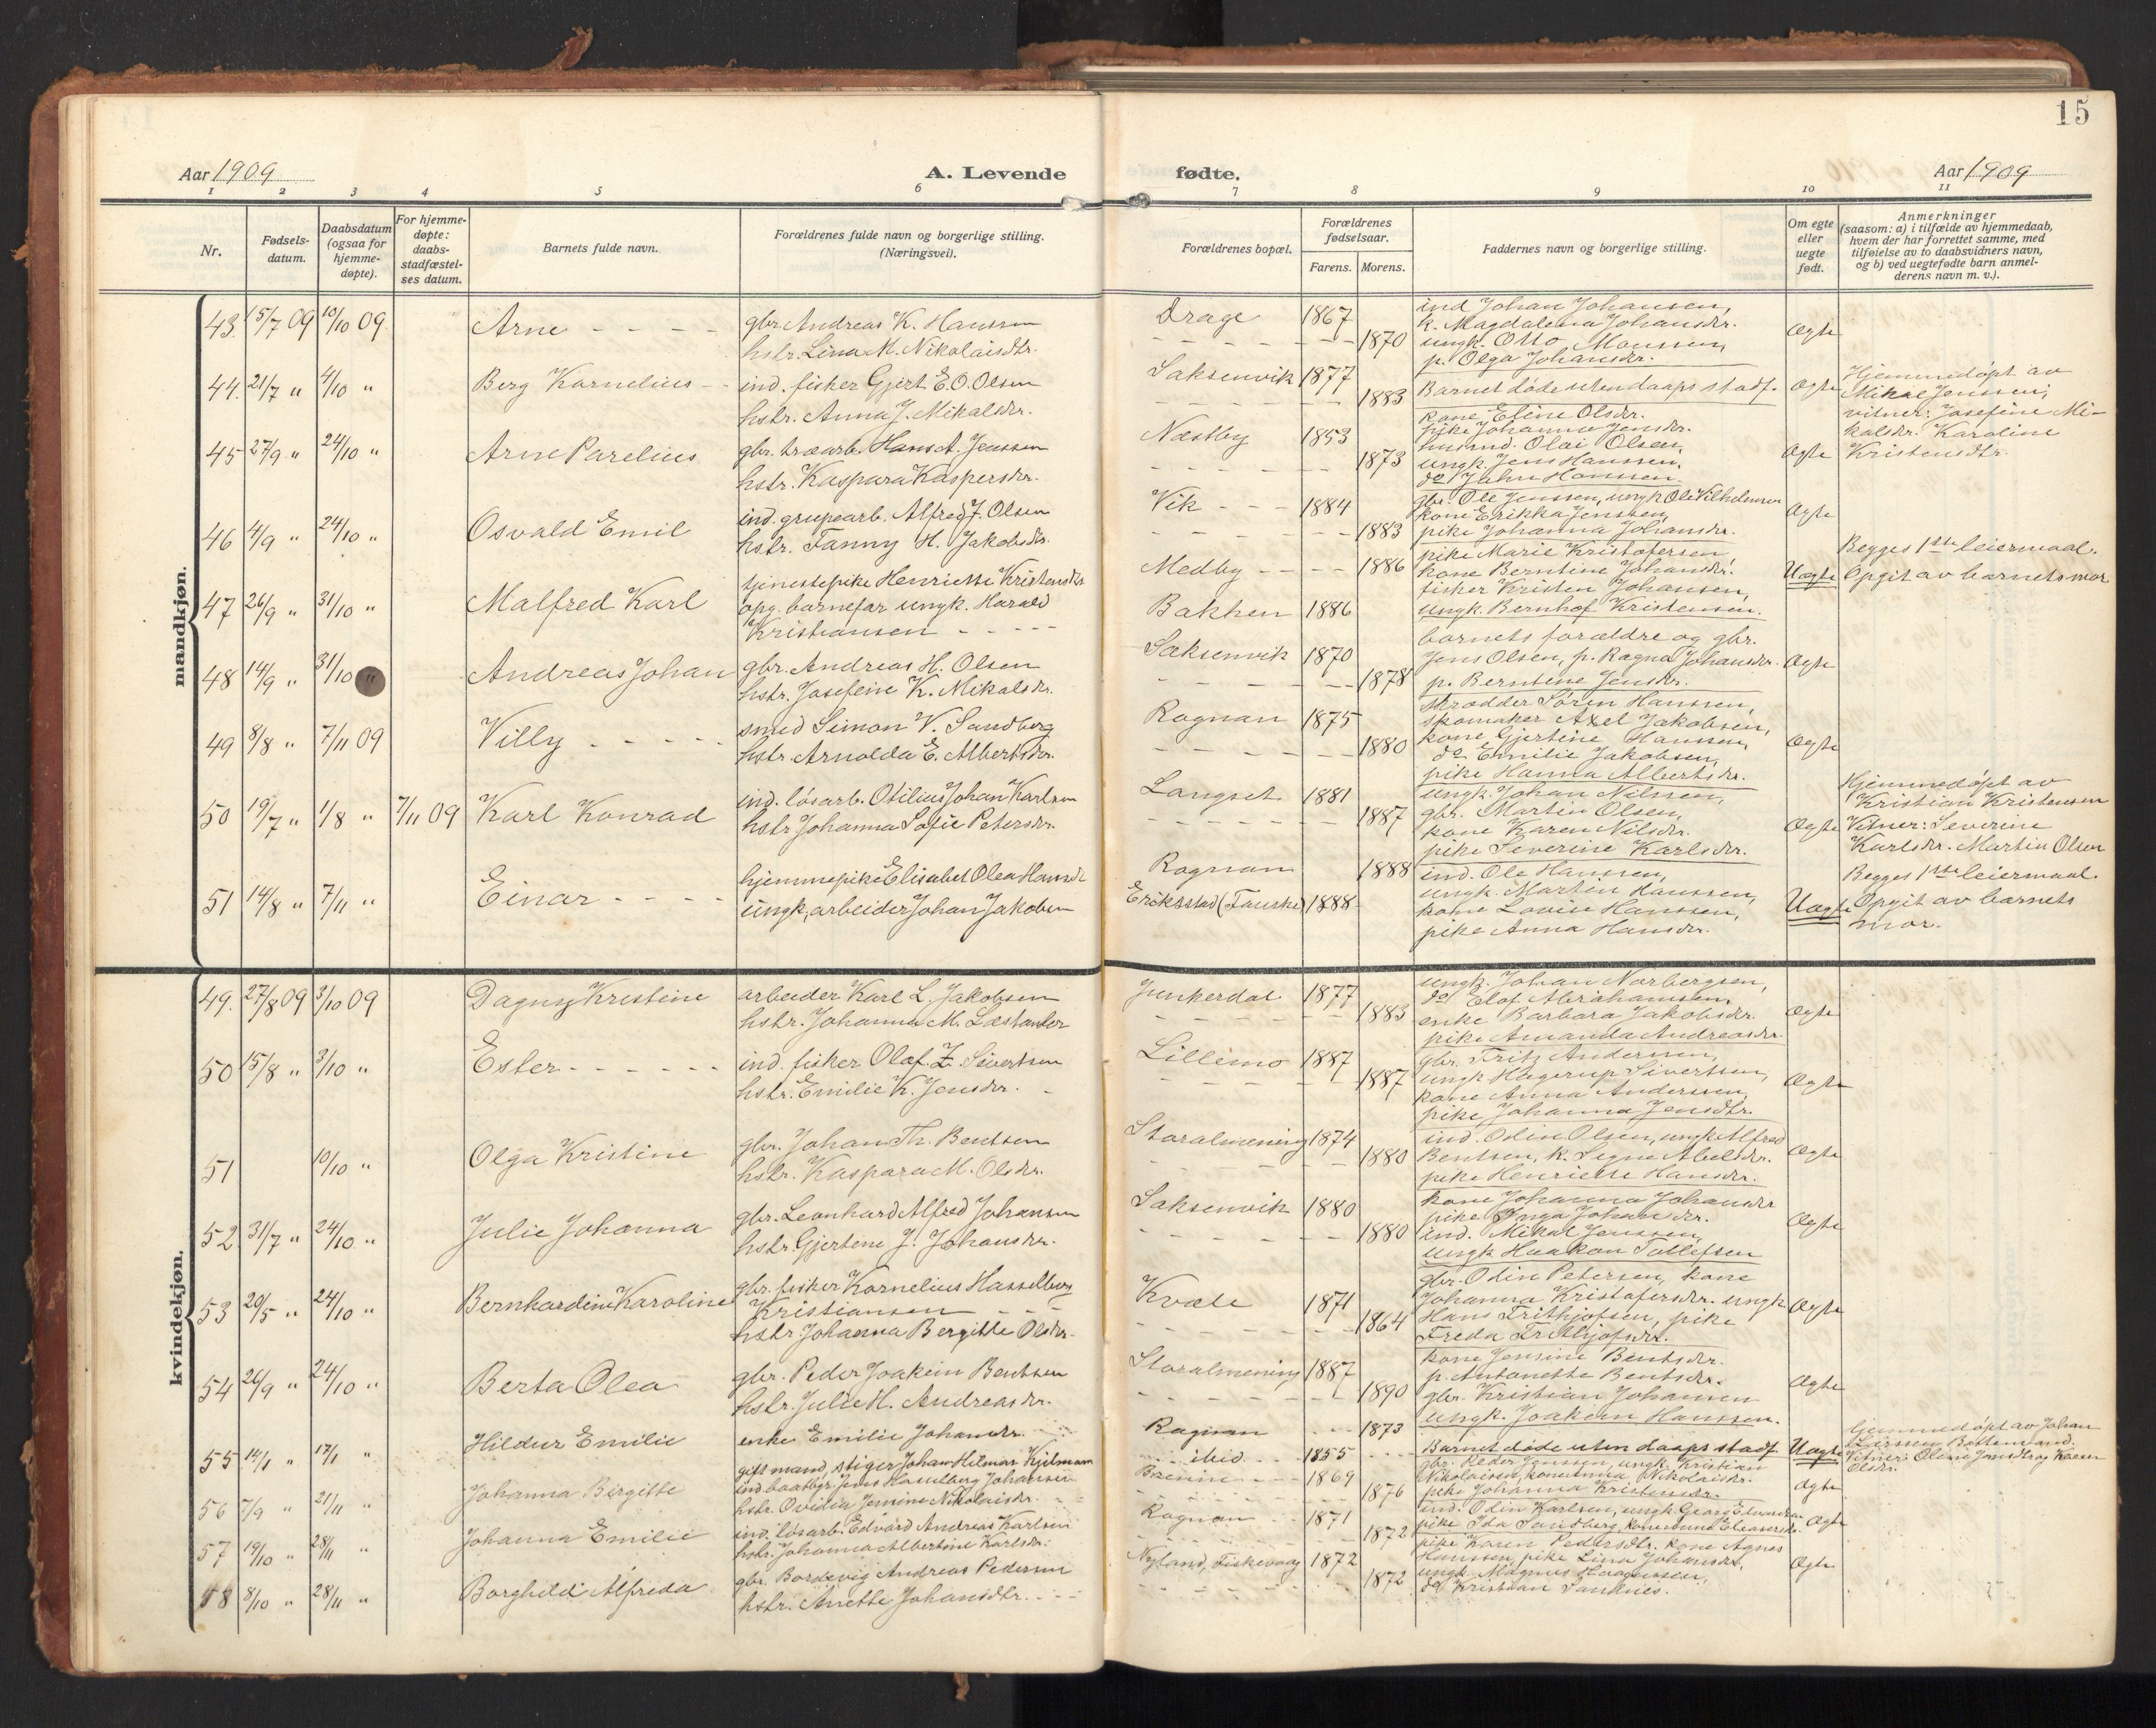 15
Aar 1909
A. Levende
fødte.
Aar 1909
1 2 3 4 5 6 7 8 9 10 11
Nr.
Fødsels-
datum.
Daabsdatum
(ogsaa for
hjemme-
døpte).
For hjemme-
døpte:
daabs-
stadfæstel-
ses datum.
Barnets fulde navn.
Forældrenes fulde navn og borgerlige stilling.
(Næringsvei).
Forældrenes bopæl.
Forældrenes
fødselsaar.
Farens. Morens.
Faddernes navn og borgerlige stilling.
Om egte
eller
uegte
født.
Anmerkninger
(saasom: a) i tilfælde av hjemmedaab,
hvem der har forrettet samme, med
tilføielse av to daabsvidners navn,
og b) ved uegtefødte barn anmel-
derens navn m. v.).
mandkjøn.
43. 15/7 09 10/10 09
Arne
gbr. Andreas K. Hanssen
hstr. Lina M. Nikolaisdtr.
Drage 1867
1870
ind Johan Johansen,
k. Magdalena Johansdr.
ungk. Otto Monssen,
p. Olga Johansdr.
Ægte
44. 21/7 " 4/10 "
Berg Kornelius
ind. fisker Gjert E. O. Olsen
hstr. Anna J. Mikalsdr.
Saksenvik 1877
1883
Barnet døde uten daaps stadf.
Ægte
Hjemmedøpt av
Mikal Jenssen;
vitner: Josefine Mi-
kalsdr. Karoline
Kristensdtr.
45 27/9 " 24/10 "
Arne Parelius
gbr. træarb. Hans A. Jenssen
hstr. Kaspara Kaspersdr.
Næstby 1853
1873
kone Eline Olsdr.
pike Johanna Jensdr.
husmd. Olai Olsen,
ungk. Jens Hanssen,
do John Hanssen.
Ægte
46 4/9 " 24/10 "
Osvald Emil
ind. grupearb. Alfred J. Olsen
hstr. Fanny H. Jakobsdtr.
Vik 1884
1883
gbr. Ole Jenssen, ungk Ole Vilhelmsen
kone Erikka Jenssen,
pike Johanna Johansdr.
Ægte
47 26/9 " 31/10 "
Malfred Karl
tjenestepike Henriette Kristensdtr
opg. barnefar ungk. Harald
Kristiansen
Medby 1886
Bakken 1886
pike Marie Kristofersen
kone Berntine Johansdr.
fisker Kristen Johansen,
ungk. Bernhof Kristensen.
Uægte
Begges 1ste leiermaal.
Opgit av barnets mor
48 14/9 " 31/10 "
Andreas Johan
gbr. Andreas H. Olsen
hstr. Josefine K. Mikalsdr.
Saksenvik 1870
1878
barnets forældre og gbr.
Jens Olsen, p. Ragna Johansdr.
p. Berntine Jensdr.
Ægte
49 8/8 " 7/11 09
Villy
smed Simon V. Sandberg
hstr. Arnolda E. Albertsdr.
Rognan 1875
1880
skrædder Søren Hanssen,
skomaker Axel Jakobsen,
kone Gjertine Hanssen,
do Emilie Jakobsen,
pike Hanna Albertsdr.
Ægte
50 19/7 " 1/8 " 7/11 09
Karl Konrad
ind. løsarb. Otilius Johan Karlsen
hstr Johanna Sofie Petersdr.
Langset 1881
1887
ungk. Johan Nilssen,
gbr. Martin Olsen,
kone Karen Nilsdr.
pike Severine Karlsdr.
Ægte
Hjemmedøpt av
Kristian Kristensen
Vitner: Severine
Karlsdr. Martin Olsen
51 14/8 " 7/11 "
Einar
hjemmepike Elisabet Olea Hansdr
ungk, arbeider Johan Jakobsen
Rognan 1888
Eriksstad (Fauske) 1888
ind. Ole Hanssen,
ungk. Morten Hanssen,
kone Lovise Hanssen,
pike Anna Hansdr.
Uægte
Begges 1ste leiermaal.
Opgit av barnets
mor.
kvindekjøn.
49. 27/8 09 3/10 09
Dagny Kristine
arbeider Karl L. Jakobsen
hstr. Johanna M. Læstander
Junkerdal 1877
1883
ungk. Johan Norbergsen,
do Elof Abrahamsen,
enke Barbara Jakobsdr.
pike Amanda Andreasdr.
Ægte
50 15/8 " 3/10 "
Ester
ind. fisker Olaf Z. Sivertsen
hstr. Emilie K. Jensdr.
Lillemo 1887
1887
gbr. Fritz Andersen,
ungk Hagerup Sivertsen,
kone Anna Anderssen,
pike Johanna Jensdtr.
Ægte
51 10/10 "
Olga Kristine
gbr. Johan Th. Bentsen
hstr. Kaspara M. Olsdr.
Storalmening 1874
1880
ind. Odin Olsen, ungk Alfred
Bentsen, k. Signe Abelsdr.
pike Henriette Hansdr.
Ægte
52 31/7 " 24/10 "
Julie Johanna
gbr. Leonhard Alfred Johansen
hstr. Gjertine J. Johansdr.
Saksenvik 1880
1880
kone Johanna Johansdr
pike Inga Johansdr.
ind. Mikal Jenssen,
ungk Haakon Tollefsen
Ægte
53 20/5 " 24/10 "
Bernhardine Karoline
gbr. fisker Kornelius Hasselberg
Kristiansen
hstr. Johanna Bergitte Olsdr.
Kvæle 1871
1864
gbr. Odin Petersen, kone
Johanna Kristofersdr. ungk
Hans Frithjofsen, pike
Freda Frithjofsdr.
Ægte
54 26/9 " 24/10 "
Berta Olea
gbr. Peder Joakim Bentsen
hstr. Julie H. Andreasdr.
Storalmening 1887
1890
kone Jensine Bentsdr.
p. Antonette Bentsdr.
gbr. Kristian Johannes
ungk. Joakim Hanssen.
Ægte
55 14/1 " 17/1 "
Hildur Emilie
enke Emilie Johansdr.
gift mand, stiger Johan Hilmar Kjelmann
Rognan 1873
ibid 1855
Barnet døde uten daaps stadf
Uægte
Hjemmedøpt av Johan
Larssen Bottenvand.
Vitner: Oline Jensdtr og Karen
Olsdr.
56 7/9 " 21/11 "
Johanna Birgitte
ind. baatbgr. Jens Haulberg Johansen
hstr. Ovidia Jensine Nikolaisdr.
Brenin 1869
1876
gbr. Peder Jenssen, ungk. Kristian
Nikolaisen, kone Anna Nikolaisdr.
pike Johanna Kristensdr.
Ægte
57 19/10 " 28/11 "
Johanna Emilie
ind. løsarb. Edvard Andreas Karlsen
hstr. Johanna Albertine Karlsdr.
Rognan 1871
1872
ind. Odin Karlsen, ungk. Georg Edvardsen
pike Ida Sandberg, kone Anna Eleasersdr.
Ægte
58 8/10 " 28/11 "
Borghild Alfreda
gbr. Bordevig Andreas Pedersen
hstr. Anette Johansdtr.
Nyland, Fiskevaag 1872
1872
pike Karen Pedersdtr. kone Agnes
Hanssen, pike Lina Johansdr.
ungk. Magnus Haagensen,
do Kristian Sannes.
Ægte